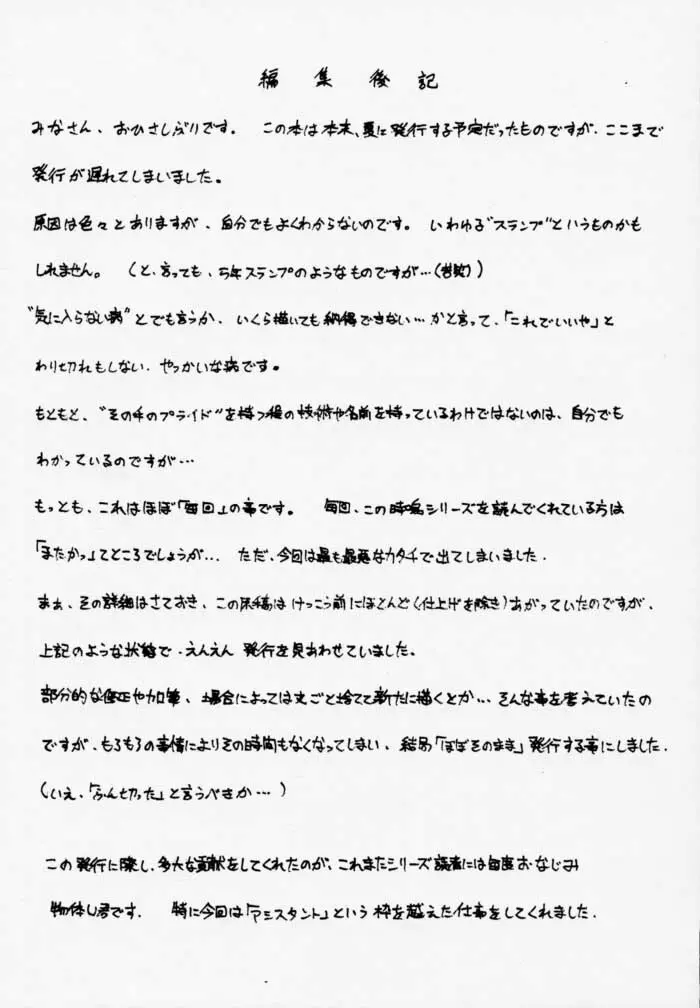 編集後記
みなさん、おひさしぶりです。 この本は本来、夏に発行する予定だったものですが、ここまで
発行が遅れてしまいました。
原因は色々とありますが、自分でもよくわからないのです。 いわゆる“スランプ”というものかも
しれません。 (と、言っても、万年スランプのようなものですが…(苦笑))
“気に入らない病”とでも言うか、いくら描いても納得できない…かと言って、「これでいいや」と
わり切れもしない、やっかいな病です。
もともと、“その手のプライド”を持つ程の技術や名前を持っているわけではないのは、自分でも
わかっているのですが…
もっとも、これはほぼ「毎回」の事です。 毎回、この時鳴シリーズを読んでくれている方は
「またかっ」てところでしょうが… ただ、今回は最も最悪なカタチで出てしまいました.
まぁ、その詳細はさておき、この原稿はけっこう前にほとんど(仕上げを除き)あがっていたのですが、
上記のような状態で、えんえん発行を見あわせていました.
部分的な修正や加筆、場合によっては丸ごと捨てて新たに描くとか…そんな事を考えていたの
ですが、もろもろの事情によりその時間もなくなってしまい、結局「ほぼそのまま」発行する事にしました.
(いえ、「ふん切った」と言うべきか…)
この発行に際し、多大な貢献をしてくれたのが、これまたシリーズ読者には毎度おなじみ
物体U君です. 特に今回は「アシスタント」という枠を越えた仕事をしてくれました.